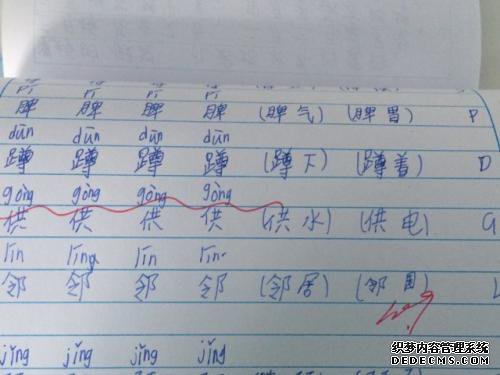 pí pí pí pí
脾 脾 脾 脾 (脾气) (脾胃) P
dūn dūn dūn dūn
蹲 蹲 蹲 蹲 (蹲下) (蹲着) D
gòng gòng gòng gòng
供 供 供 供 (供水) (供电) G
lín líng lín lín
邻 邻 邻 邻 (邻居) (邻国) L
jǐng jǐng jǐng jǐng
织梦内容管理系统
DEDECMS.COM